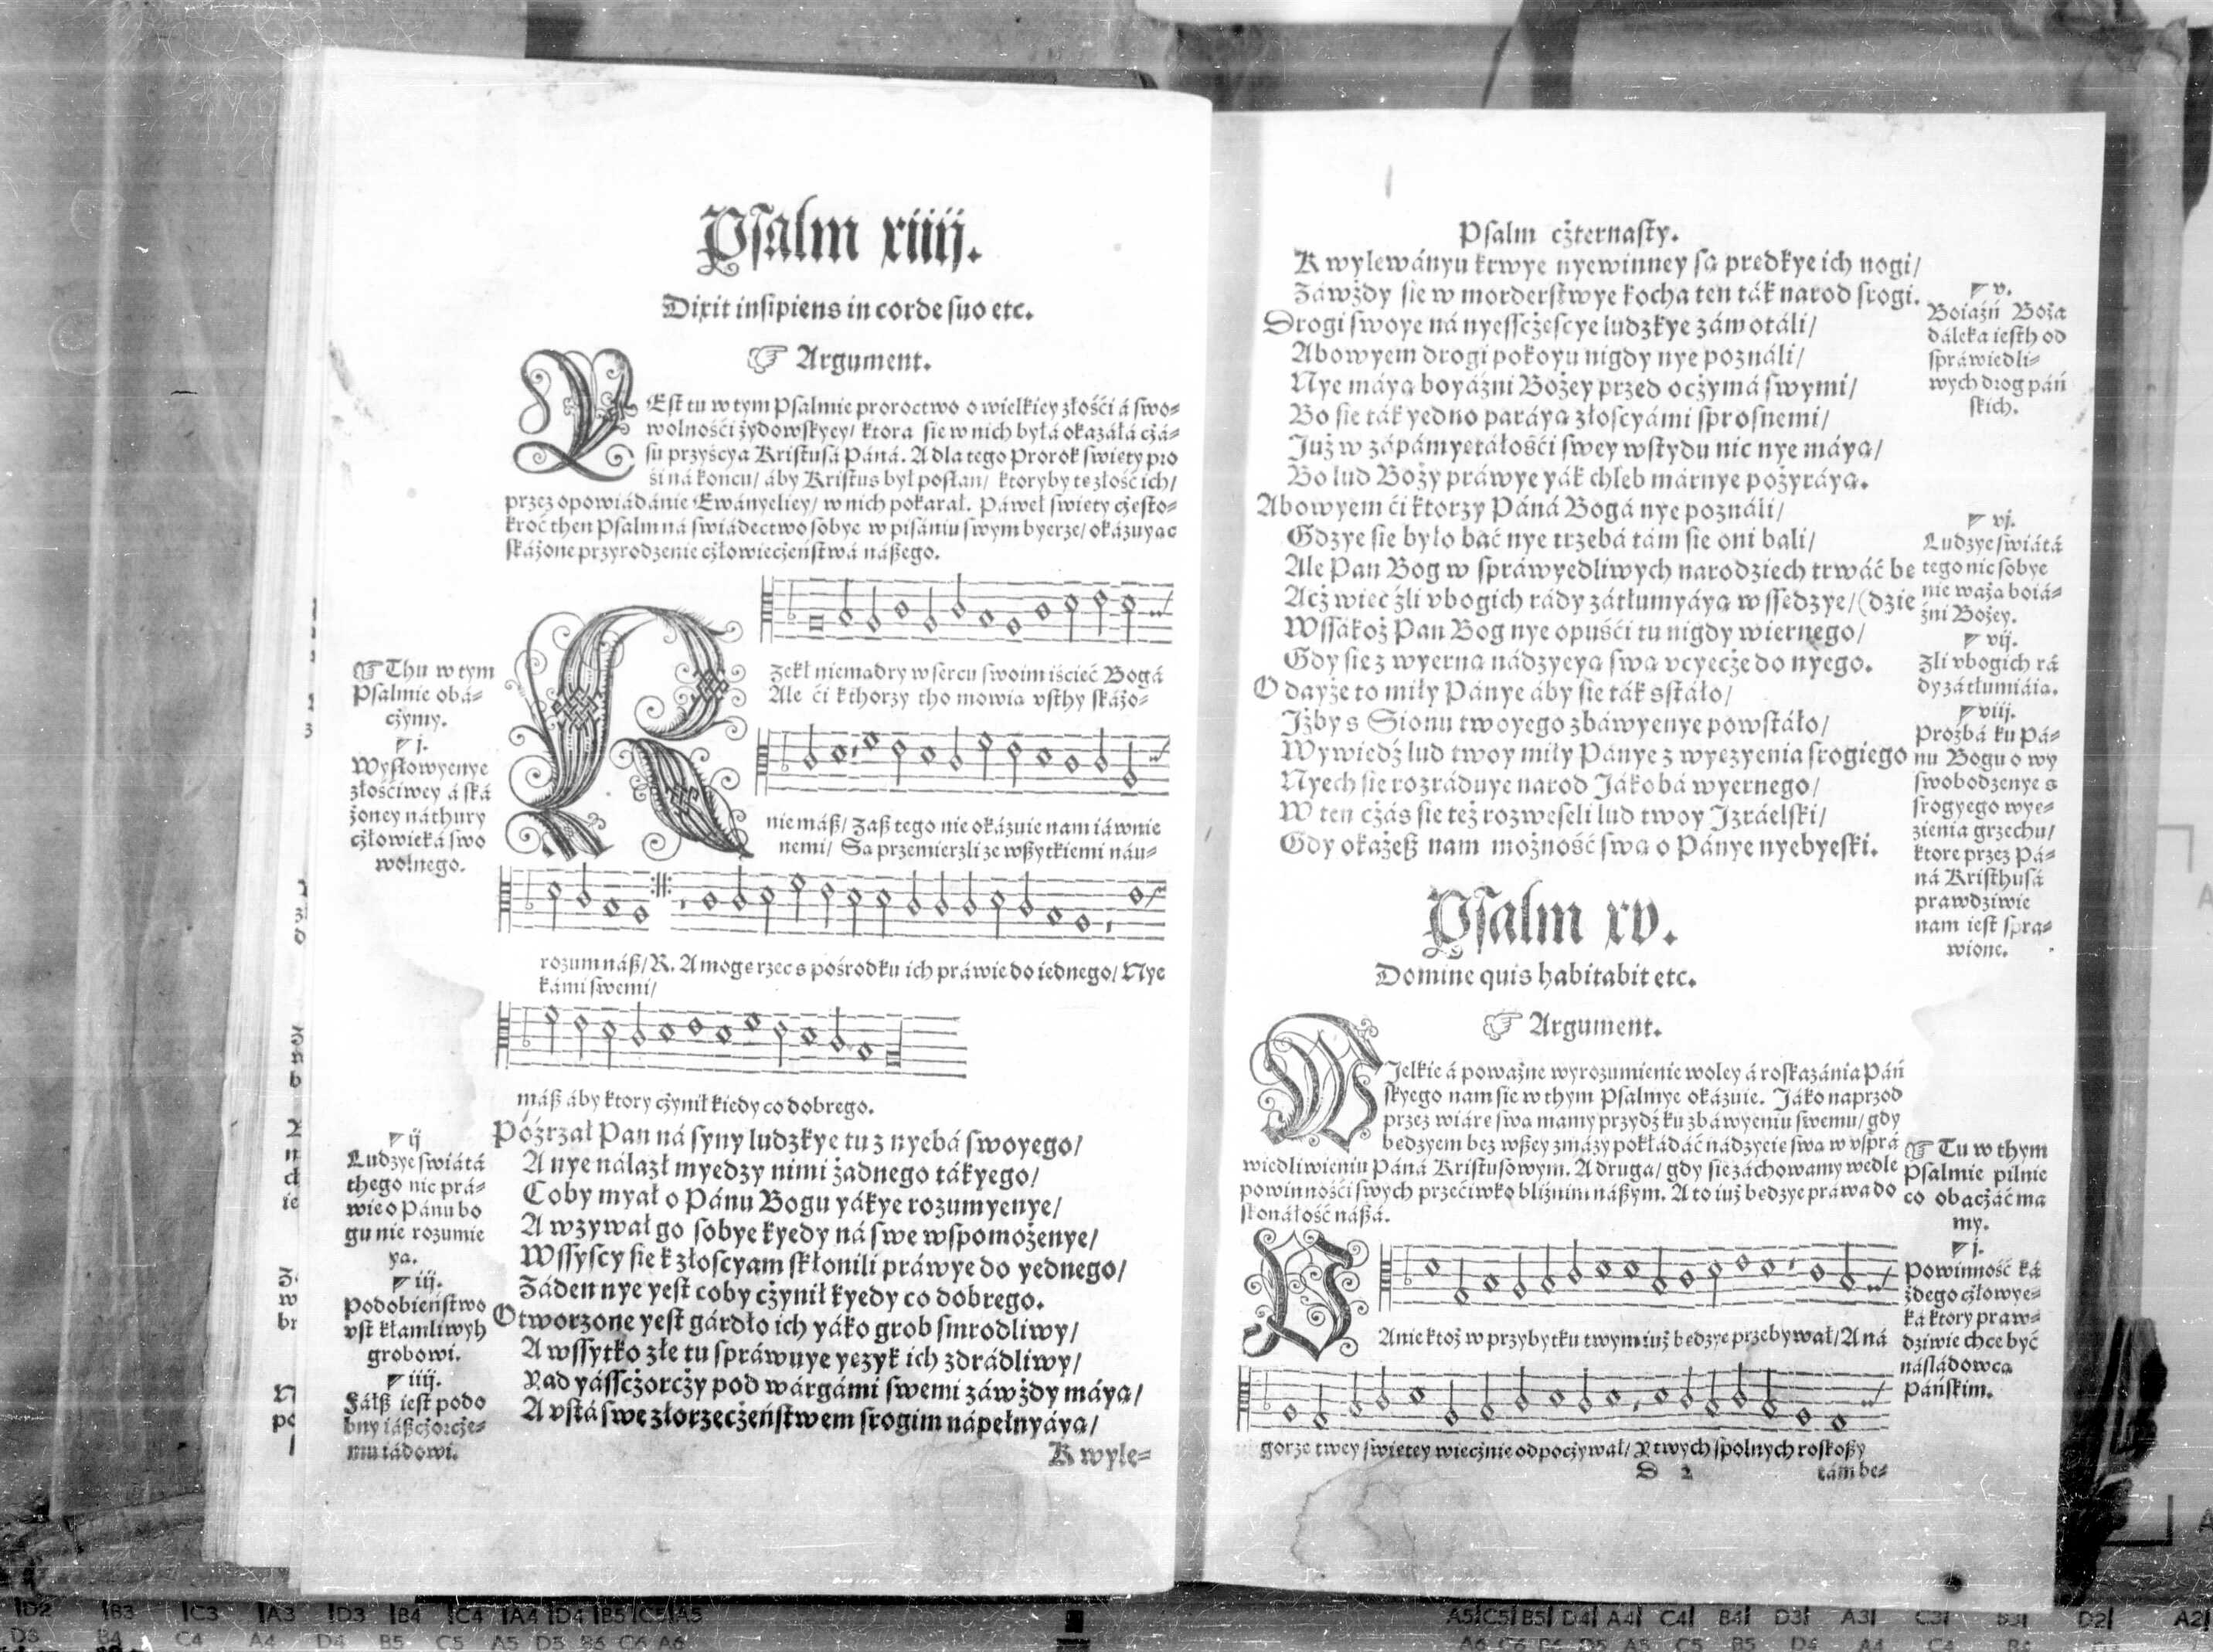 Psalm xiiij.
Dixit insipiens in corde suo etc.
☞ Argument.
JEst tu w tym Psalmie proroctwo o wielkiey złośći á swo⸗
wolnośći żydowskyey/ ktora sie w nich byłá okazáłá cżá⸗
su przyścya Kristusá Páná. A dla tego Prorok swiety pro
śi ná końcu/ áby Kristus był posłan/ ktoryby te złość ich/
przez opowiádánie Ewányeliey/ w nich pokarał. Páweł swiety cżesto⸗
kroć then Psalm ná swiádectwo sobye w pisániu swym byerze/ okázuyąc
skáżone przyrodzenie cżłowiecżeństwá nászego.
☞ Thu w tym
Psalmie obá⸗
cżymy.
j.
Wysłowyenye
złośćiwey á ská
żoney náthury
cżłowieká swo
wolnego.
Rzekł niemądry w sercu swoim iścieć Bogá
Ale ći kthorzy tho mowią vsthy skáżo⸗
niemász/ Zász tego nie okázuie nam iáwnie
nemi/ Są przemierzli ze wszytkiemi náu⸗
rozum nász/ R. A mogę rzec s pośrodku ich práwie do iednego/ Nye
kámi swemi/
mász áby ktory cżynił kiedy co dobrego.
Późrzał Pan ná syny ludzkye tu z nyebá swoyego/
A nye nálazł myedzy nimi żadnego tákyego/
Coby myał o Pánu Bogu yákye rozumyenye/
A wzywał go sobye kyedy ná swe wspomożenye/
Wssyscy sie k złoscyam skłonili práwye do yednego/
Żaden nye yest coby cżynił kyedy co dobrego.
Otworzone yest gárdło ich yáko grob smrodliwy/
A wssytko złe tu spráwuye yezyk ich zdrádliwy/
Yad yásscżorcży pod wárgámi swemi záwżdy máyą/
A vstá swe złorzecżeństwem srogim nápełnyáyą/
K wyle⸗
ij
Ludzye swiátá
thego nic prá⸗
wie o Pánu bo
gu nie rozumie
ya.
iij.
Podobieństwo
vst kłamliwyh
grobowi.
iiij.
Fáłsz iest podo
bny iászcżorcże⸗
mu iádowi.
Psalm cżternasty.
K wylewányu krwye nyewinney są predkye ich nogi/
Záwżdy sie w morderstwye kocha ten ták narod srogi.
Drogi swoye ná nyesscżescye ludzkye zámotáli/
Abowyem drogi pokoyu nigdy nye poználi/
Nye máyą boyáźni Bożey przed ocżymá swymi/
Bo sie ták yedno paráyą złoscyámi sprosnemi/
Już w zápámyetáłośći swey wstydu nic nye máyą/
Bo lud Boży práwye yák chleb márnye pożyráyą.
Abowyem ći ktorzy Páná Bogá nye poználi/
Gdzye sie było bać nye trzebá tám sie oni bali/
Ale Pan Bog w spráwyedliwych narodziech trwáć be
Acż wiec źli vbogich rády zátłumyáyą w ssedzye/ (dzie
Wssákoż Pan Bog nye opuśći tu nigdy wiernego/
Gdy sie z wyerną nádzyeyą swą vcyecże do nyego.
O dayże to miły Pánye áby sie ták sstáło/
Jżby s Sionu twoyego zbáwyenye powstáło/
Wywiedź lud twoy miły Pánye z wyezyenia srogiego
Nyech sie rozráduye narod Jákobá wyernego/
W ten cżás sie też rozweseli lud twoy Jzráelski/
Gdy okażesz nam możność swą o Pánye nyebyeski.
v.
Boiáźń Boża
dáleka iesth od
spráwiedli⸗
wych drog páń
skich.
vj.
Ludzye swiátá
tego nic sobye
nie ważą boiá⸗
źni Bożey.
vij.
Zli vbogich rá
dy zátłumiáią.
viij.
Prośbá ku Pá⸗
nu Bogu o wy
swobodzenye s
srogyego wye⸗
zienia grzechu/
ktore przez Pá⸗
ná Kristhusá
prawdziwie
nam iest sprá⸗
wione.
Psalm xv.
Domine quis habitabit etc.
☞ Argument.
WJelkie á poważne wyrozumienie woley á roskazánia Páń
skyego nam sie w thym Psalmye okázuie. Jáko naprzod
przez wiárę swą mamy przydź ku zbáwyeniu swemu/ gdy
bedzyem bez wszey zmázy pokłádáć nádzyeie swą w vsprá
wiedliwieniu Páná Kristusowym. A druga/ gdy sie záchowamy wedle
powinnośći swych przećiwko bliźnim nászym. A to iuż bedzye práwa do
skonáłość nászá.
☞ Tu w thym
Psalmie pilnie
co obacżáć ma
my.
j.
Powinność ká
żdego cżłowye⸗
ká ktory praw⸗
dziwie chce być
násládowcą
Páńskim.
PAnie ktoż w przybytku twym iuż bedzye przebywał/ A ná
gorze twey swietey wiecżnie odpocżywał/ Y twych spolnych roskoszy
D 2
tám be⸗